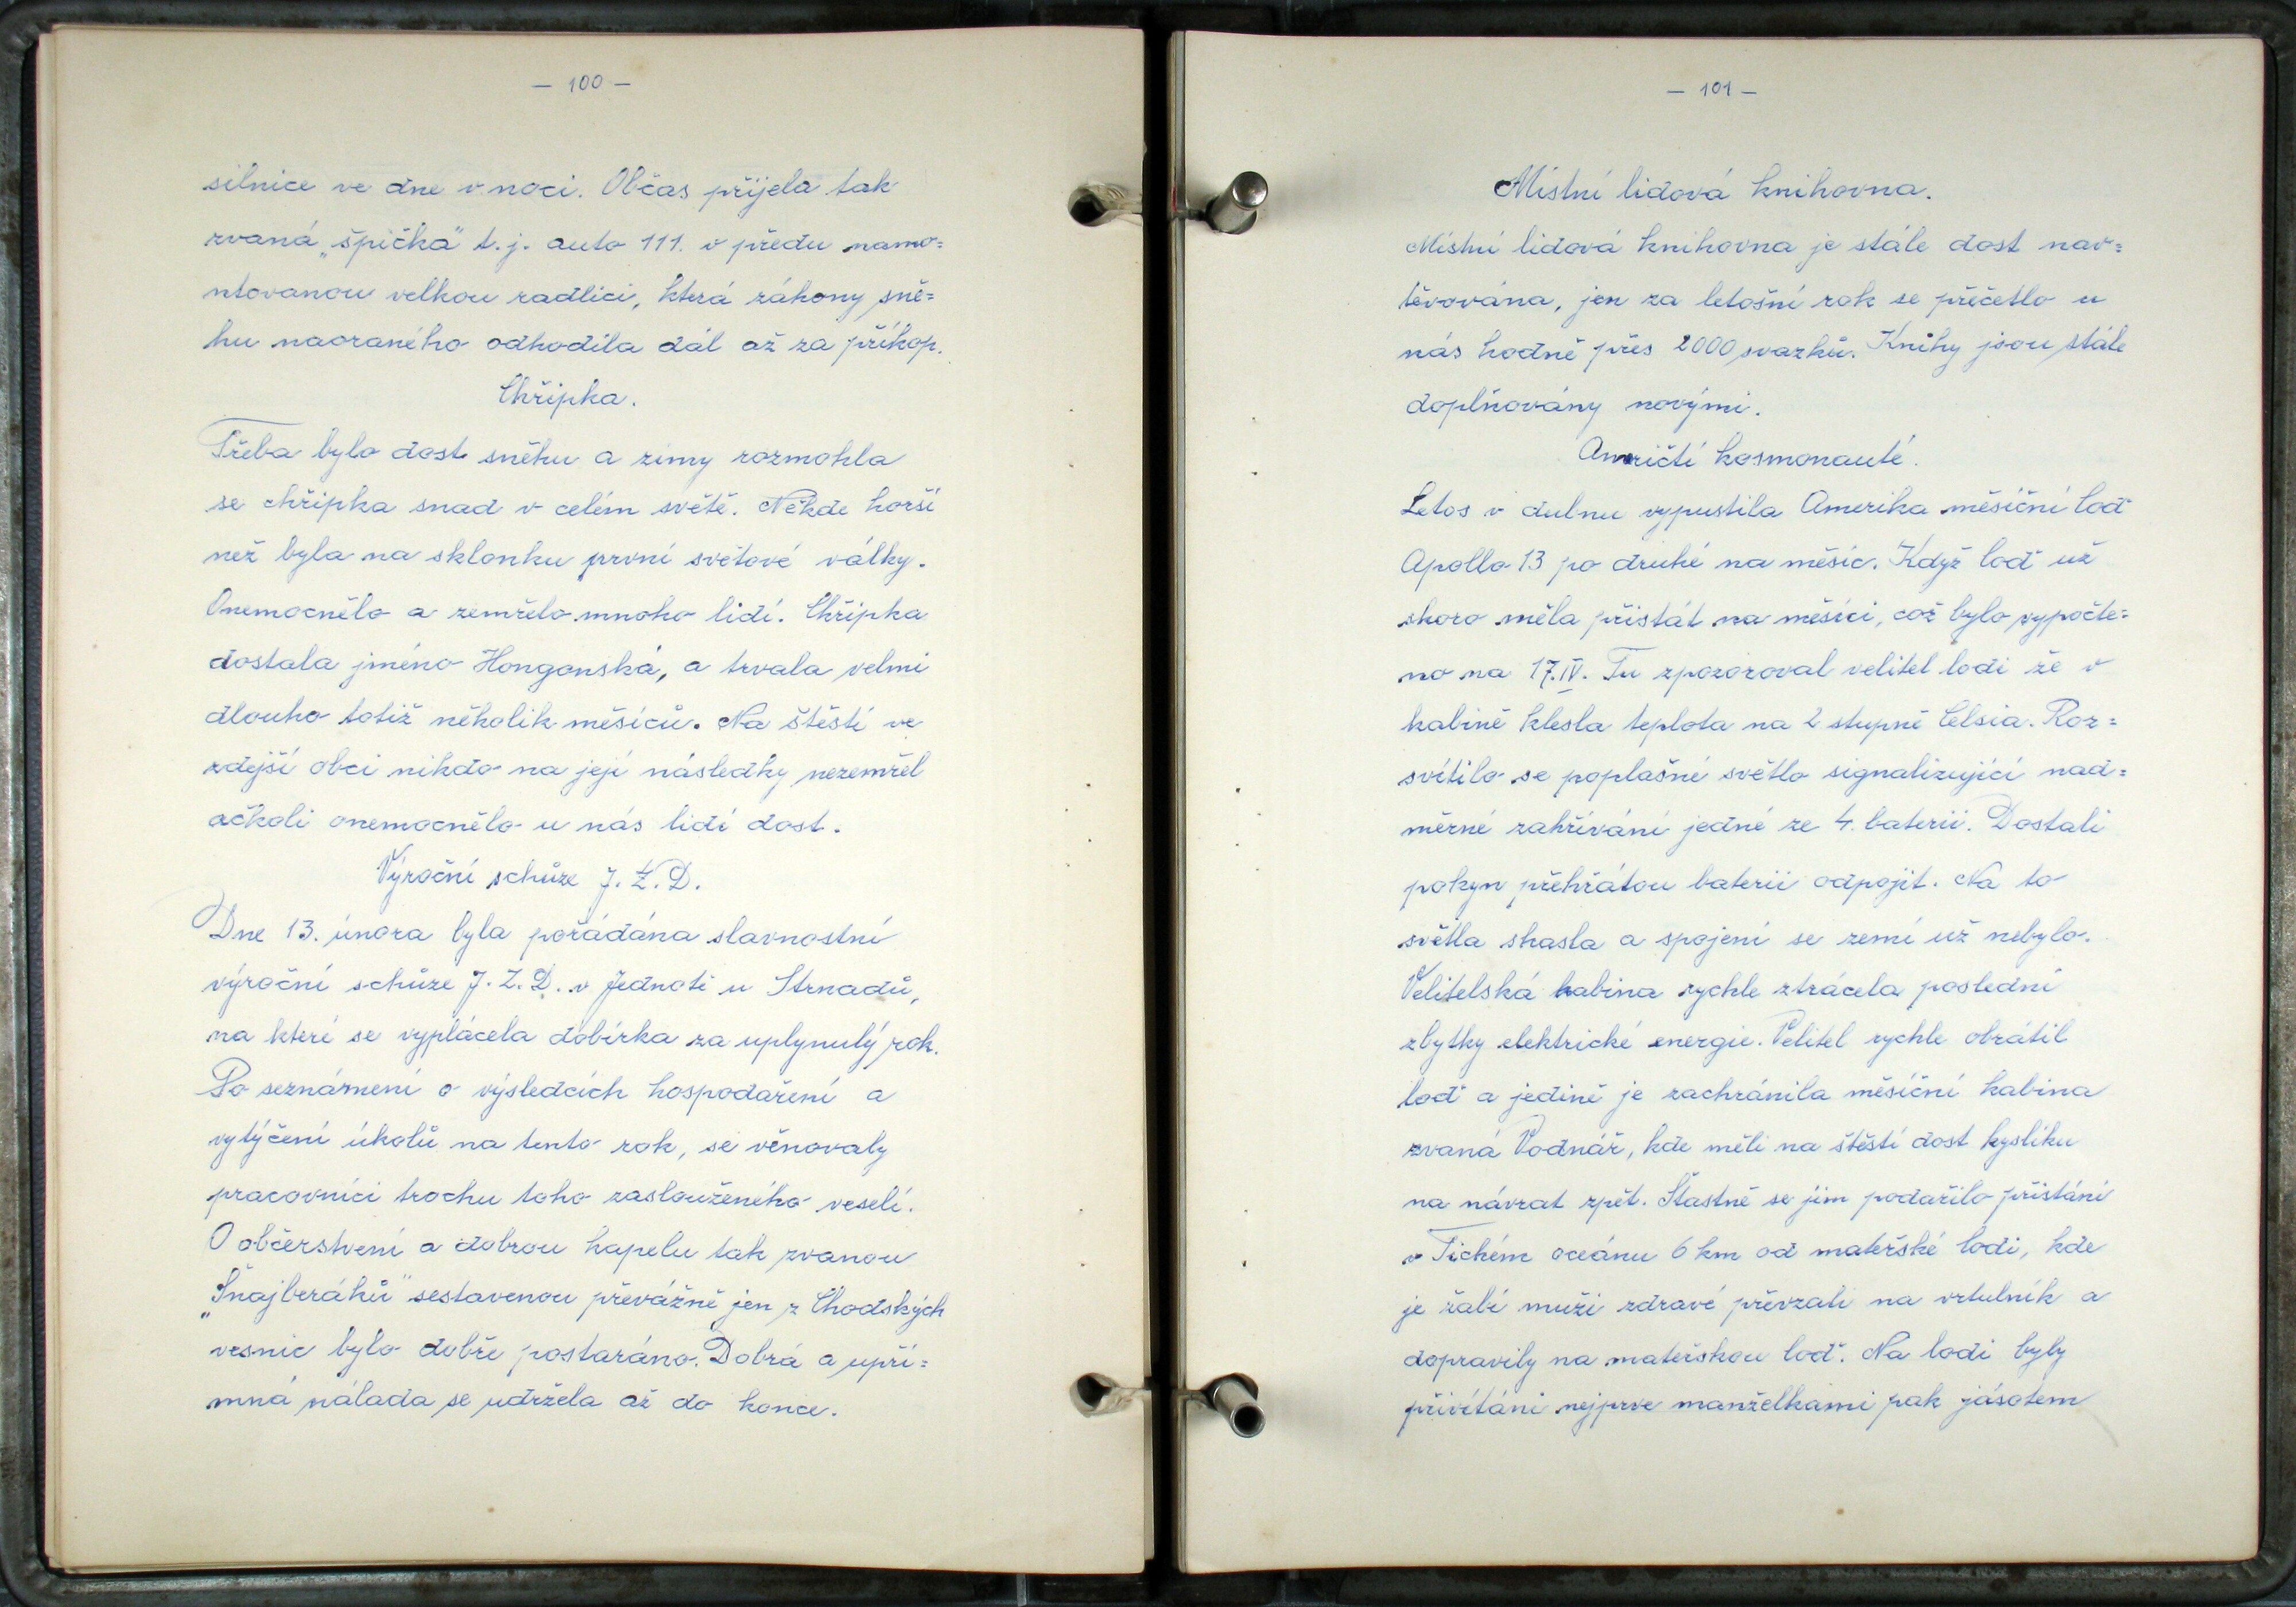 — 100 —
silnice ve dne v noci. Občas přijela tak
zvaná „špička" t.j. auto 111. v předu namo=
ntovanou velkou radlici, která záhony sně=
hu naoraného odhodila dál až za příkop.
Chřipka.
Třeba bylo dost sněhu a zimy rozmohla
se chřipka snad v celém světě. Někde horší
než byla na sklonku první světové války.
Onemocnělo a zemřelo mnoho lidí. Chřipka
dostala jméno Honganská, a trvala velmi
dlouho totiž několik měsíců. Na štěstí ve
zdejší obci nikdo na její následky nezemřel
ačkoli onemocnělo u nás lidí dost.
Výroční schůze J.Z.D.
Dne 13. února byla pořádána slavnostní
výroční schůze J.Z.D. v Jednotě u Strnadů,
na které se vyplácela dobírka za uplynulý rok.
Po seznámení o výsledcích hospodaření a
vytýčení úkolů na tento rok, se věnovaly
pracovníci trochu toho zaslouženého veselí.
O občerstvení a dobrou kapelu tak zvanou
„Šnajberáků" sestavenou převážně jen z Chodských
vesnic bylo dobře postaráno. Dobrá a upří=
mná nálada se udržela až do konce.
— 101 —
Místní lidová knihovna.
Místní lidová knihovna je stále dost nav=
těvována, jen za letošní rok se přečetlo u
nás hodně přes 2000 svazků. Knihy jsou stále
doplňovány novými.
Američtí kosmonauté.
Letos v dubnu vypustila Amerika měsíční loď
Apollo 13 po druhé na měsíc. Když loď už
skoro měla přistát na měsíci, což bylo vypočte=
no na 17.IV. Tu zpozoroval velitel lodi že v
kabině klesla teplota na 2 stupně Celsia. Roz=
svítilo se poplašné světlo signalizující nad=
měrné zahřívání jedné ze 4. baterii. Dostali
pokyn přehřátou baterii odpojit. Na to
světla shasla a spojení se zemí už nebylo.
Velitelská kabina rychle ztrácela poslední
zbytky elektrické energie. Velitel rychle obrátil
loď a jedině je zachránila měsíční kabina
zvaná Vodnář, kde měli na štěstí dost kyslíku
na návrat zpět. Šťastně se jim podařilo přistání
v Tichém oceánu 6 km od mateřské lodi, kde
je žabí muži zdravé převzali na vrtulník a
dopravily na mateřskou loď. Na lodi byly
přivítáni nejprve manželkami pak jásotem